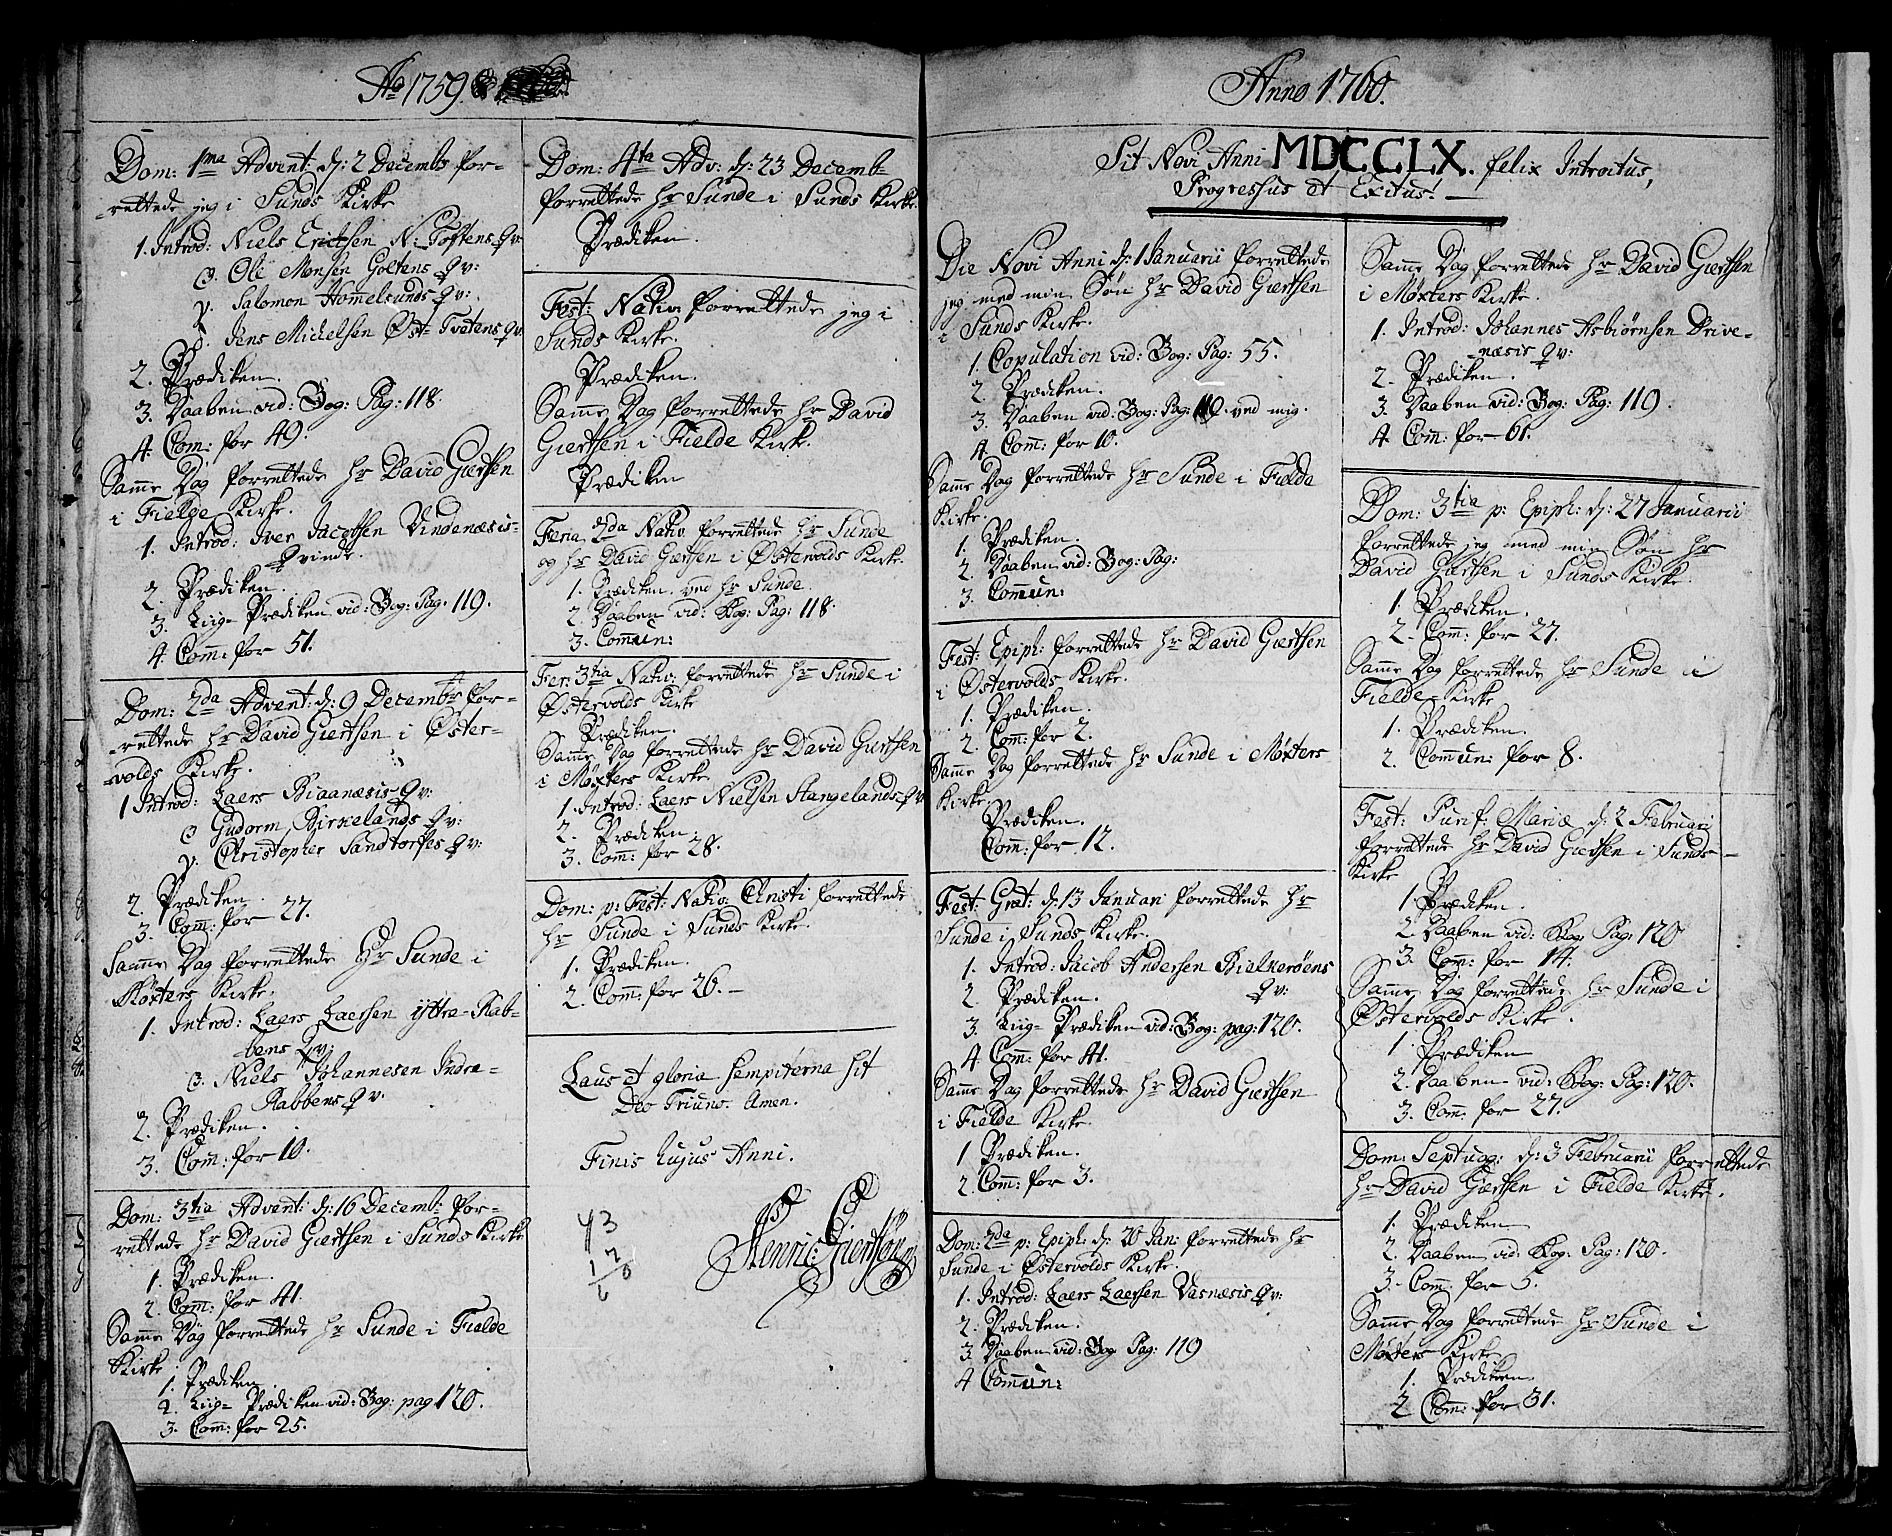 Ao 1759.
Dom: 1ma Advent: d: 2 Decembr for-
rettede jeg i Sunds Kirke
1. Introd: Niels Erichsen N: Toftens Qv:
Ole Monsen Goltens Qv:
Salomon Hommelsunds Qv:
Jens Michelsen Øst-Tvetens Qv:
2. Prædiken.
3. Daaben vid: Bog: Pag: 118.
4. Com: for 49.
Samme Dag forrettede Hr David Giertsen
i Fielde Kirke.
1. Introd: Iver Jacobsen Vindenæsis-
Qvinde.
2. Prædiken.
3. Liig-Prædiken vid: Bog: Pag: 119.
4. Com: for 51.
Dom: 2da Advent: d: 9 Decembr for-
rettede Hr David Giertsen i Øster-
volds Kirke.
1 Introd: Laers Biaanæsis Qv:
Gudorm Birkelands Qv:
Christopher Sandtorfes Qv:
2. Prædiken.
3. Com: for 27.
Samme Dag forrettede Hr Sunde i
Møxters Kirke.
1. Introd: Laers Laersen ÿttre-Rab-
bens Qv:
Niels Johannesen Indre-
Rabbens Qv:
2. Prædiken.
3. Com: for 10.
Dom: 3tia Advent: d: 16 Decemb: for-
rettede Hr David Giertsen i Sunds Kirke
1. Prædiken.
2. Com: for 41.
Samme Dag forrettede Hr Sunde i Fielde
Kirke
1. Prædiken
2. Liig-Prædiken vid: Bog: pag 120.
3. Com: for 25.
Dom: 4ta Adv: d: 23 Decemb-
forrettede Hr Sunde i Sunds Kirke.
Prædiken.
Fest: Nativ: forrettede jeg i
Sunds Kirke.
Prædiken.
Samme Dag forrettede Hr David
Giertsen i Fielde Kirke.
Prædiken
Feria 2da Nativ forrettede Hr Sunde
og Hr David Giertsen i Østervolds Kirke.
1. Prædiken ved Hr Sunde.
2. Daaben vid: Bog: Pag: 118.
3. Comun:
Fer: 3tia Nativ: forrettede Hr Sunde i
Østervolds Kirke
Prædiken.
Samme Dag forrettede Hr David Giertsen
i Møxters Kirke
1. Introd: Laers Nielsen Stangelands Qv:
2. Prædiken.
3. Com: for 28.
Dom: p: Fest: Nativ: Christi forrettede
Hr Sunde i Sunds Kirke.
1. Prædiken.
2. Com: for 26.
Laus et gloria sempiterna sit
Deo Triuno. Amen.
Finis hujus Anni.
Henric: Giertsøn
43
17
Anno 1760.
Sit Novi Anni MDCCLX. felix Introitus,
Progressus et Exitus!
Die Novi Anni d: 1 Januarii forrettede
jeg med min Søn Hr David Giertsen
i Sunds Kirke.
1. Copulation vid: Bog: Pag: 55.
2. Prædiken.
3. Daaben vid: Bog: Pag: 119. ved mig.
4. Com: for 10.
Samme Dag forrettede Hr Sunde i Fielde
Kirke.
1. Prædiken.
2. Daaben vid: Bog: Pag:
3. Comun:
Fest: Epiph: forrettede Hr David Giertsen
i Østervolds Kirke.
1. Prædiken.
2. Com: for 2.
Samme Dag forrettede Hr Sunde i Møxters
Kirke.
Prædiken.
Com: for 12.
Fest: Græt: d: 13 Januari forrettede Hr
Sunde i Sunds Kirke.
1. Introd: Jacob Andersen Bielkerøens
Qv:
2. Prædiken.
3. Liig-Prædiken vid: Bog: pag: 120.
4 Com: for 41.
Samme Dag forrettede Hr David Giertsen
i Fielde Kirke.
1 Prædiken.
2. Com: for 3.
Dom: 2da p: Epiph: d: 20 Jan: forrettede Hr
Sunde i Østervolds Kirke.
1. Introd: Laers Laersen Vasnæsis Qv:
2. Prædiken.
3 Daaben vid: Bog Pag: 119
4 Comun:
Samme Dag forrettede Hr David Giertsen
i Møxters Kirke.
1. Introd: Johannes Asbiørnsen Drive-
næsis Qv:
2. Prædiken.
3. Daaben vid: Bog: Pag: 119.
4. Com: for 61.
Dom: 3tia p: Epiph: d: 27 Januarii
forrettede jeg med min Søn Hr
David Giertsen i Sunds Kirke.
1. Prædiken.
2. Com: for 27.
Samme Dag forrettede Hr Sunde i
Fielde-Kirke
1. Prædiken.
2. Commun: for 8.
Fest: Purif: Mariæ d: 2 Februari
forrettede Hr David Giertsen i Sunds-
Kirke
1. Prædiken.
2. Daaben vid: Bog: Pag: 120
3. Com: for 14.
Samme Dag forrettede Hr Sunde i
Østervolds Kirke.
1. Prædiken
2. Daaben vid: Bog: Pag: 120.
3. Com: for 27.
Dom: Septuag: d: 3 Februarii forrettede
Hr David Giertsen i Fielde Kirke.
1. Prædiken
2. Daaben vid: Bog: Pag: 120.
3. Com: for 5.
Samme Dag forrettede Hr Sunde i
Møxters Kirke
1. Prædiken.
2 Com: for 31.